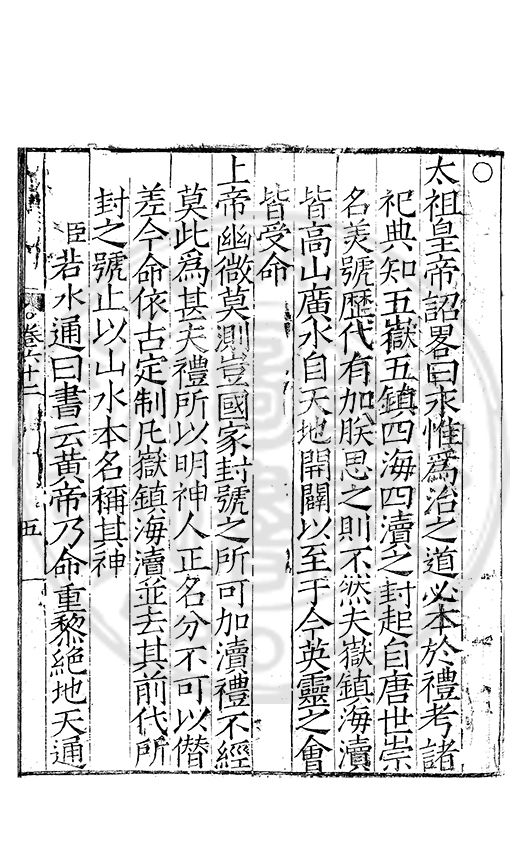 ○
太祖皇帝詔畧曰永惟為治之道必本於禮考諸
祀典知五嶽五鎮四海四瀆之封起自唐世崇
名美號歷代有加朕思之則不然夫嶽鎮海瀆
皆高山廣水自天地開闢以至于今英靈之會
皆受命
上帝幽微莫測豈國家封號之所可加瀆禮不經
莫此為甚夫禮所以明神人正名分不可以僭
差今命依古定制凡嶽鎮海瀆並去其前代所
封之號止以山水本名稱其神
臣若水通曰書云黃帝乃命重黎絶地天通
卷六十二
五